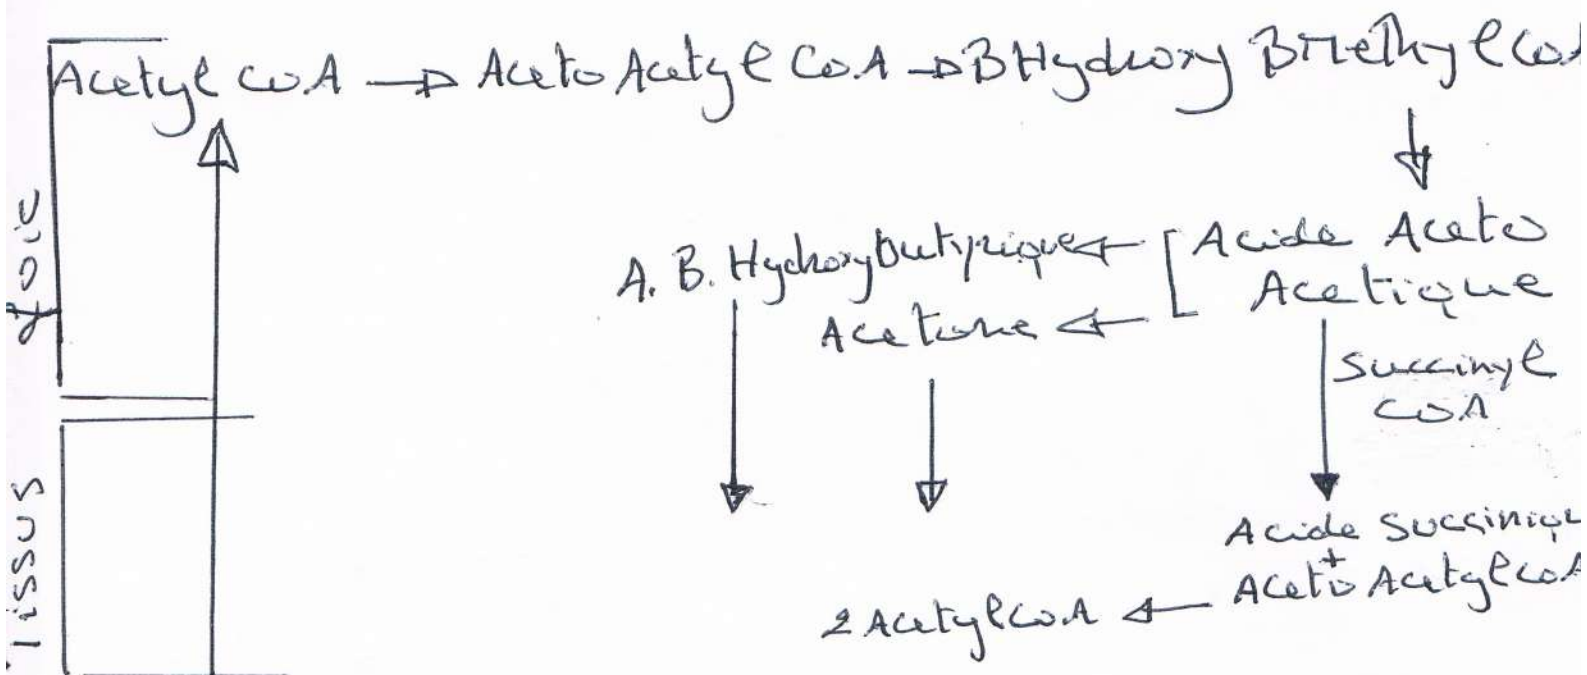 Acetyl CoA → AcetoAcetyl CoA → BHydroxy BMethyl CoA
foie
A. B. Hydroxybutyrique ← Acide Aceto
Acetone ← Acetique
Succinyl
CoA
Tissus
Acide Succiniqu
+
2 Acetyl CoA ← Aceto Acetyl CoA